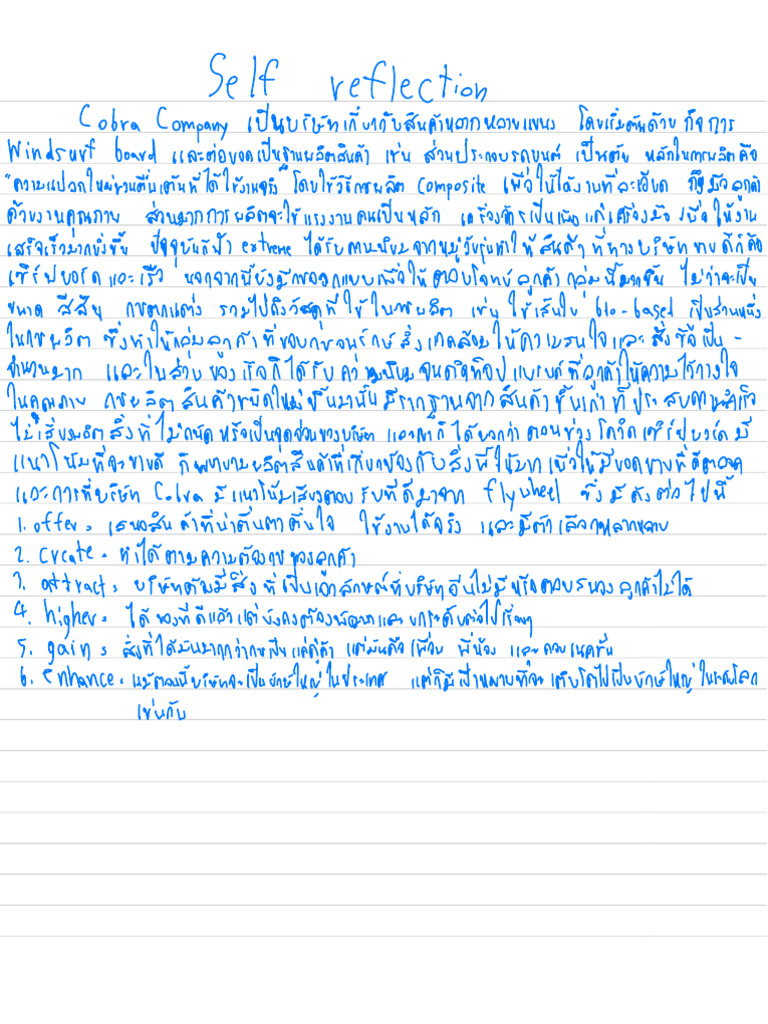 Self reflection
Cobra Company เป็นบริษัทเกี่ยวกับสินค้าหลากหลายแขนง โดยเริ่มต้นด้วย กิจการ
Windsurf board และต่อยอดเป็นฐานผลิตสินค้า เช่น ส่วนประกอบรถยนต์ เป็นต้น หลักในการผลิตคือ
"ความแปลกใหม่ชวนตื่นเต้นที่ได้ใช้งานจริง โดยใช้วิธีการผลิต composite เพื่อให้ได้งานที่ละเอียด ถึงมือลูกค้า
ด้วยงานคุณภาพ ส่วนมากการผลิตจะใช้แรงงานคนเป็นหลัก เครื่องจักรเป็นเพียงแค่เครื่องมือ เพื่อให้งาน
เสร็จเร็วมากยิ่งขึ้น ปัจจุบันกีฬา extreme ได้รับความนิยมจากหมู่วัยรุ่นทำให้สินค้าที่ทางบริษัทขายดีก็คือ
เซิร์ฟบอร์ด และเรือ นอกจากนี้ยังมีการออกแบบเพื่อให้ตอบโจทย์ลูกค้ากลุ่มนี้มากขึ้น ไม่ว่าจะเป็น
ขนาด สีสัน การตกแต่ง รวมไปถึงวัสดุที่ใช้ในการผลิต เช่น ใช้เส้นใย bio-based เป็นส่วนหนึ่ง
ในการผลิต ซึ่งทำให้กลุ่มลูกค้าที่ชอบการอนุรักษ์สิ่งแวดล้อมให้ความสนใจและสั่งซื้อเป็น-
จำนวนมาก และในส่วนของเรือก็ได้รับความนิยมจนติดท็อปแบรนด์ที่ลูกค้าให้ความไว้วางใจ
ในคุณภาพ การผลิตสินค้าชนิดใหม่ขึ้นมานั้นมีรากฐานจากสินค้าชิ้นเก่าที่ประสบความสำเร็จ
ไม่เสี่ยงผลิตสิ่งที่ไม่ถนัด หรือเป็นจุดด้อยของบริษัท และเขาก็ได้บอกว่า ตอนช่วงโควิดเซิร์ฟบอร์ดมี
แนวโน้มที่จะขายดี ก็พยายามผลิตสินค้าที่เกี่ยวข้องกับสิ่งนี้ให้มาก เพื่อให้มียอดขายที่ดี
และการที่บริษัท Cobra มีแนวโน้มเสียงตอบรับที่ดีมาจาก flywheel ซึ่งมีดังต่อไปนี้
1. offer = เสนอสินค้าที่น่าตื่นตาตื่นใจ ใช้งานได้จริง และมีตัวเลือกหลากหลาย
2. Create = ทำได้ตามความต้องการของลูกค้า
3. attract = บริษัทต้องมีสิ่งที่เป็นเอกลักษณ์ที่บริษัทอื่นไม่มีหรือตอบสนองลูกค้าไม่ได้
4. higher = ได้ของที่ดีแล้วแต่ยังคงต้องพัฒนาและยกระดับต่อไปเรื่อยๆ
5. gain = สิ่งที่ได้มันมากกว่าการเป็นแค่คู่ค้า แต่มันคือเพื่อน พี่น้อง และคอนเนคชั่น
6. enhance = แม้ตอนนี้บริษัทจะเป็นยักษ์ใหญ่ในประเทศ แต่ก็มีเป้าหมายที่จะเติบโตไปเป็นยักษ์ใหญ่ในระดับโลก
เช่นกัน